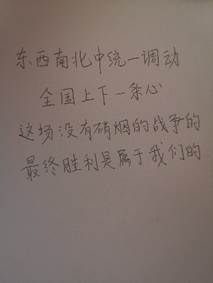 东西南北中统一调动
全国上下一条心
这场没有硝烟的战争的
最终胜利是属于我们的